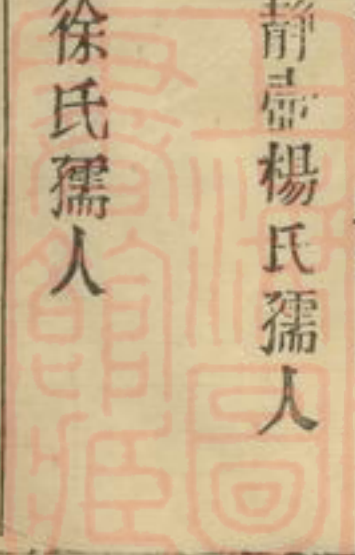 靜壼楊氏孺人
徐氏孺人